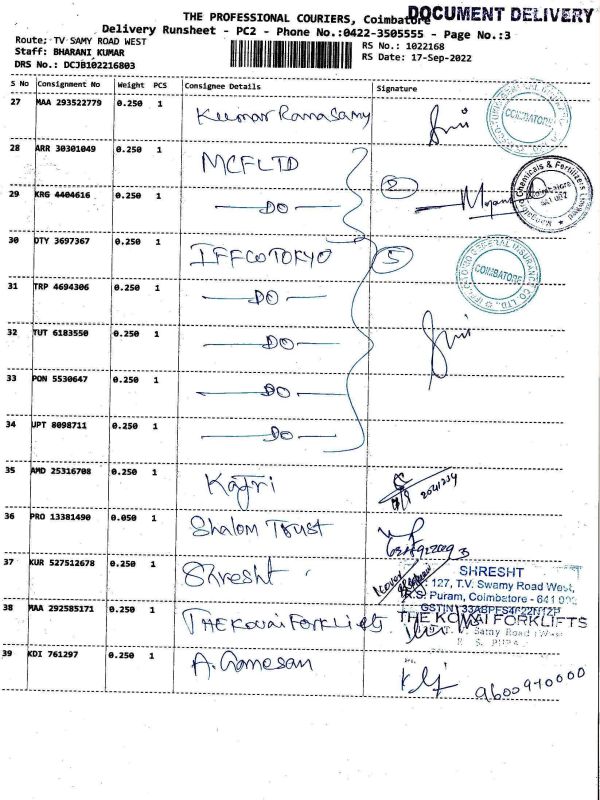 DOCUMENT DELIVERY
THE PROFESSIONAL COURIERS, Coimbatore
Delivery Runsheet - PC2 - Phone No.:0422-3505555 - Page No.:3
Route: TV SAMY ROAD WEST
Staff: BHARANI KUMAR
DRS No.: DCJB102216803
RS No.: 1022168
RS Date: 17-Sep-2022
S No Consignment No Weight PCS Consignee Details Signature
27 MAA 293522779 0.250 1 Kumar Ramasamy
COIMBATORE
28 ARR 30301049 0.250 1 MCFLTD
2
29 KRG 4404616 0.250 1 DO
Chemicals & Fertilizers Limited
Coimbatore
30 DTY 3697367 0.250 1 IFFCOTOKYO
5
GENERAL INSURANCE CO. LTD.
COIMBATORE
31 TRP 4694306 0.250 1 DO
32 TUT 6183550 0.250 1 DO
33 PON 5530647 0.250 1 DO
34 UPT 8098711 0.250 1 DO
35 AMD 25316708 0.250 1 Kafri
36 PRO 13381490 0.050 1 Shalom Trust
37 KUR 527512678 0.250 1 Shresht
SHRESHT
127, T.V. Swamy Road West,
R.S. Puram, Coimbatore - 641 002
38 MAA 292585171 0.250 1 THE KOVAI FORKLIFTS
THE KOVAI FORKLIFTS
39 KDI 761297 0.250 1 A. Ganesan
9600970000